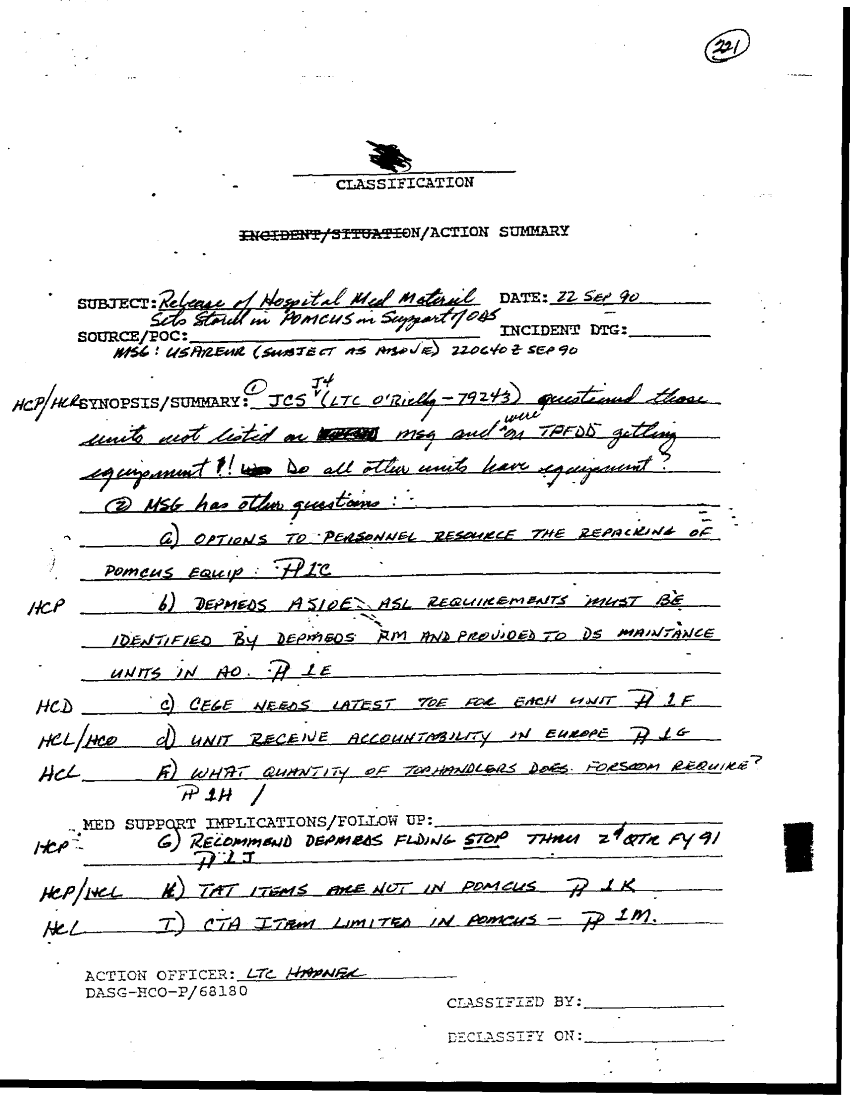 221
CLASSIFICATION
INCIDENT/SITUATION/ACTION SUMMARY
SUBJECT: Release of Hospital Med Materiel DATE: 22 SEP 90
Sets Stored in POMCUS in Support of ODS
SOURCE/POC: INCIDENT DTG:
MSG: USAREUR (SUBJECT AS ABOVE) 220640Z SEP 90
HCP/HCR SYNOPSIS/SUMMARY: ① JCS J4 (LTC O'Rielly - 79243) questioned those
units not listed on msg and were on TPFDD getting
equipment?!! Do all other units have equipment?
② MSG has other questions:
a) OPTIONS TO PERSONNEL RESOURCE THE REPACKING OF
POMCUS EQUIP: ¶ 1C
HCP b) DEPMEDS ASIDE ASL REQUIREMENTS MUST BE
IDENTIFIED BY DEPMEDS RM AND PROVIDED TO DS MAINTANCE
UNITS IN AO. ¶ 1E
HCD c) CEGE NEEDS LATEST TOE FOR EACH UNIT ¶ 1F
HCL/HCO d) UNIT RECEIVE ACCOUNTABILITY IN EUROPE ¶ 1G
HCL F) WHAT QUANTITY OF TOPHANDLERS DOES FORSCOM REQUIRE?
¶ 1H /
MED SUPPORT IMPLICATIONS/FOLLOW UP:
HCP G) RECOMMEND DEPMEDS FLDING STOP THRU 2d QTR FY 91
¶ 1J
HCP/HCL H) TAT ITEMS ARE NOT IN POMCUS ¶ 1K
HCL I) CTA ITEM LIMITED IN POMCUS - ¶ 1M.
ACTION OFFICER: LTC HAPNER
DASG-HCO-P/68180
CLASSIFIED BY:
DECLASSIFY ON: